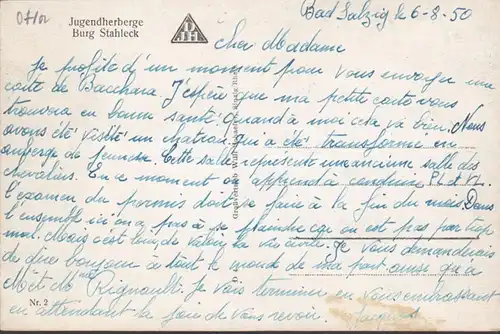 07/02
Jugendherberge
Burg Stahleck
DJH
Bad Salzig le 6-8-50
Cher Madame
Je profite d'un moment pour vous envoyer une
carte de Bacchara. J'espère que ma petite carte vous
trouvera en bonne santé. Quand à moi cela va bien. Nous
avons été visité un chateau qui a été transformé en
auberge de jeunesse. Cette salle représente une ancienne salle des
chevaliers. En ce moment j'apprend à conduire PL et VL.
l'examen du permis doit se faire à la fin du mois. Dans
l'ensemble ici on a pas à se plaindre car on est pas par trop
mal. Mais c'est loin de valoir la vie civile. Je vous demanderais
de dire bonjour à tout le monde de ma part ainsi qu'a
Mr et Mme Rignault. Je vais terminer en vous embrassant
en attendant la joie de vous revoir. Jacques
Nr. 2